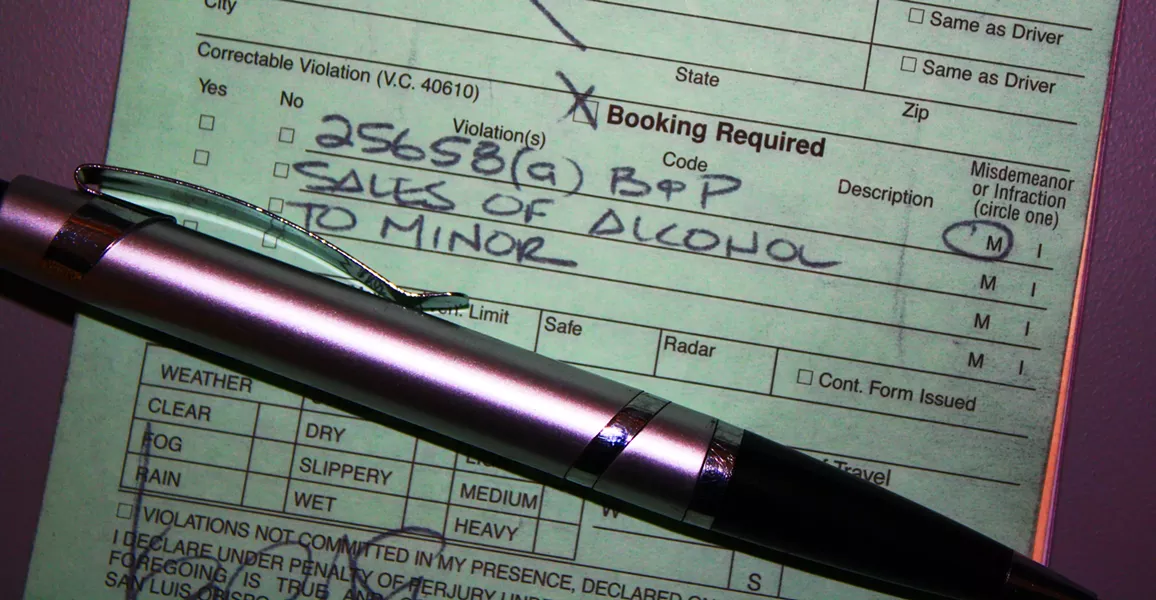 City
☐ Same as Driver
State
☐ Same as Driver
Zip
Correctable Violation (V.C. 40610)
Booking Required
Yes No Violation(s) Code Description Misdemeanor
or Infraction
(circle one)
25658(a) B&P M I
SALES OF ALCOHOL M I
TO MINOR M I
M I
Limit Safe Radar ☐ Cont. Form Issued
WEATHER
CLEAR DRY
FOG SLIPPERY MEDIUM
RAIN WET HEAVY
of Travel
W
S
☐ VIOLATIONS NOT COMMITTED IN MY PRESENCE, DECLARED
I DECLARE UNDER PENALTY OF PERJURY UNDER
FOREGOING IS TRUE AND
SAN LUIS OBISPO